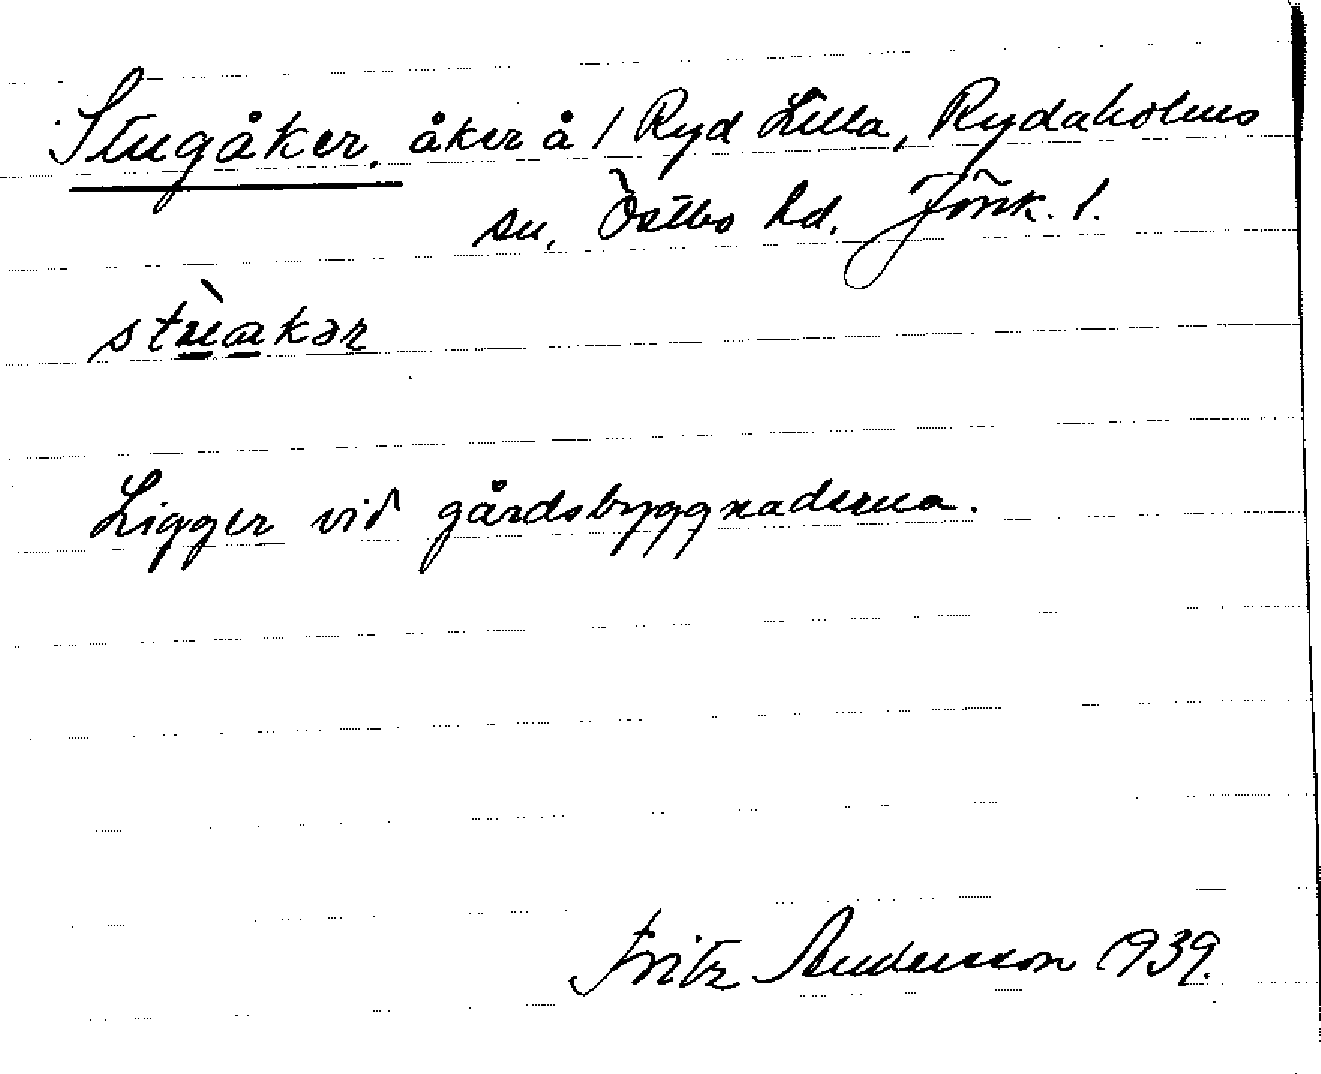 Stugåker. åker å 1 Ryd Lilla, Rydaholms
sn, Östbo hd. Jönk. l.
Ligger vid gårdsbyggnaderna.
Fritz Andersson 1939.